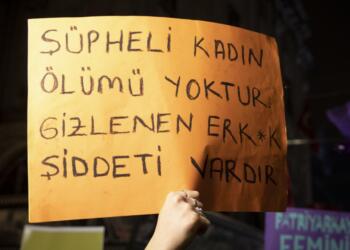 ŞÜPHELİ KADIN
ÖLÜMÜ YOKTUR.
GİZLENEN ERK*K
ŞİDDETİ VARDIR
PATRİYARKAY
FEMİN